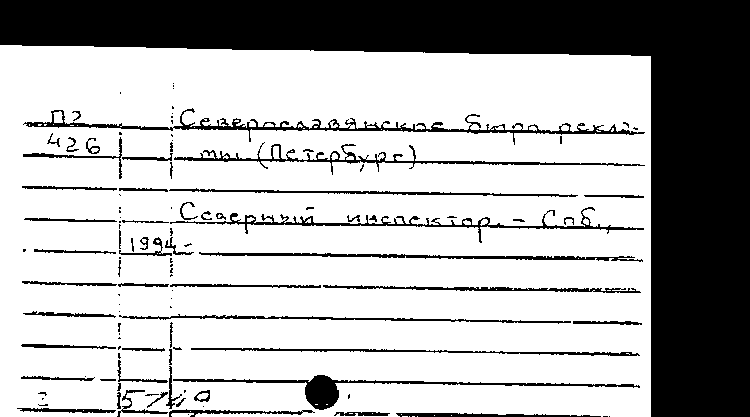 П2 Северославянское бюро рекла-
426 мы (Петербург)
Северный инспектор. - Спб.,
1994-
2 5749